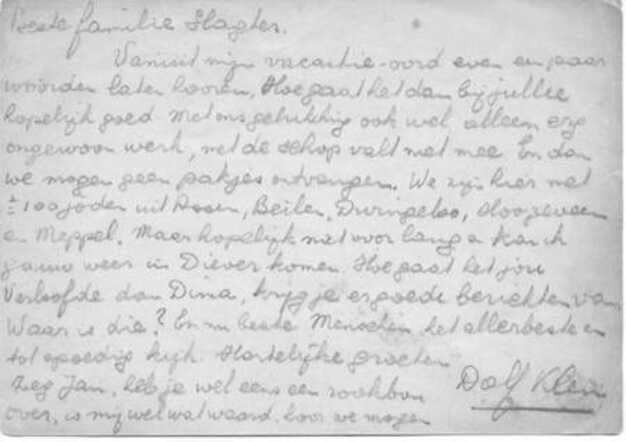 Beste familie Slagter.
Vanuit mijn vacantie-oord even een paar
woorden laten hooren, Hoe gaat het dan bij jullie
hopelijk goed met ons gelukkig ook wel, alleen erg
ongewoon werk, met de schop valt niet mee En dan
we mogen geen pakjes ontvangen. We zijn hier met
± 100 joden uit Assen, Beilen, Dwingeloo, Hoogeveen
en Meppel. Maar hopelijk niet voor lang en kan ik
gauw weer in Diever komen. Hoe gaat het jou
Verloofde dan Dina, krijg je er goede berichten van
Waar is die? En nu beste Menschen het allerbeste en
tot spoedig kijk. Hartelijke groeten
Zeg Jan, heb je wel eens een rookbon
Dolf Klein
over, is mij wel wat waard. hoor we mogen